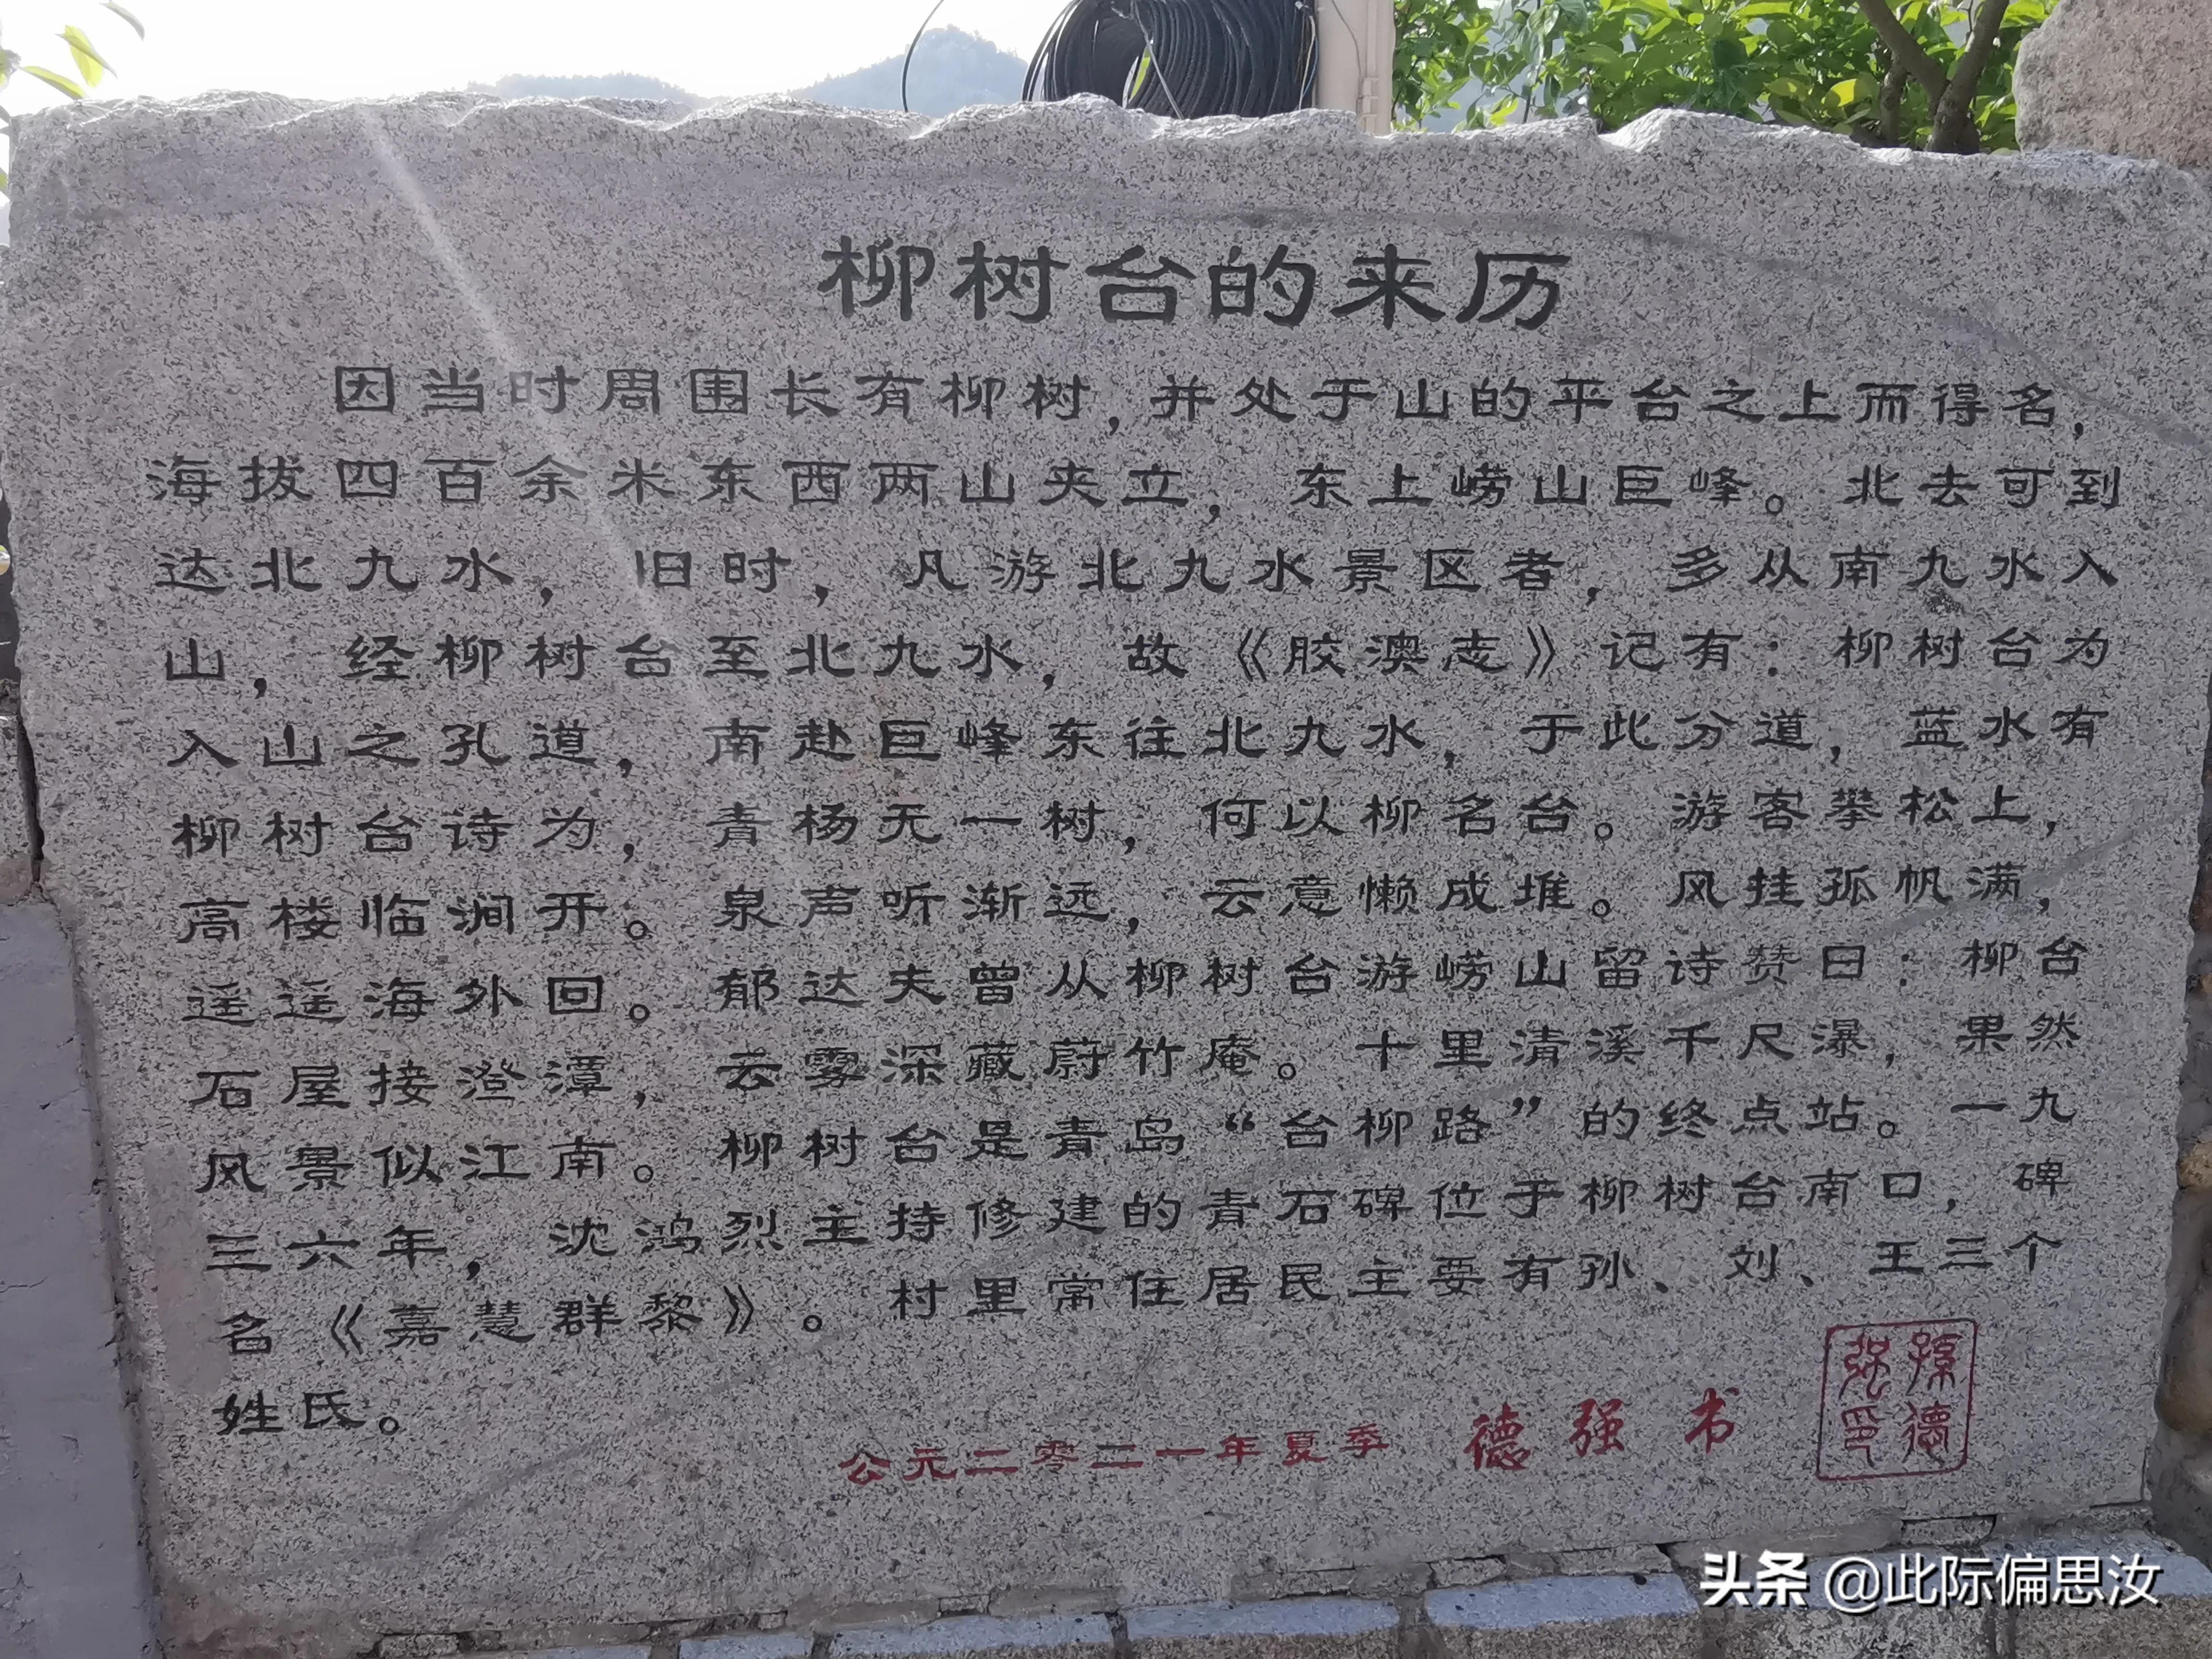 柳树台的来历
因当时周围长有柳树,并处于山的平台之上而得名,
海拔四百余米东西两山夹立,东上崂山巨峰。北去可到
达北九水,旧时,凡游北九水景区者,多从南九水入
山,经柳树台至北九水,故《胶澳志》记有:柳树台为
入山之孔道,南赴巨峰东往北九水,于此分道,蓝水有
柳树台诗为,青杨无一树,何以柳名台。游客攀松上,
高楼临涧开。泉声听渐远,云意懒成堆。风挂孤帆满,
遥遥海外回。郁达夫曾从柳树台游崂山留诗赞曰:柳台
石屋接澄潭,云雾深藏蔚竹庵。十里清溪千尺瀑,果然
风景似江南。柳树台是青岛“台柳路”的终点站。一九
三六年,沈鸿烈主持修建的青石碑位于柳树台南口,碑
名《嘉慧群黎》。村里常住居民主要有孙、刘、王三个
姓氏。
公元二零二一年夏季 德强书
孫德强印
头条 @此际偏思汝